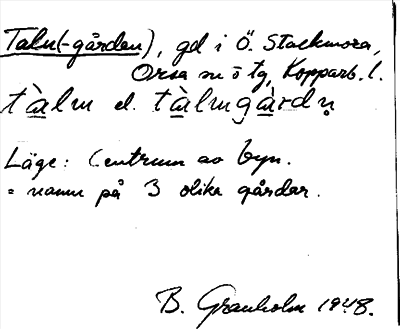 Talu(-gården), gd i Ö. Stackmora,
Orsa sn o tg, Kopparb. l.
tàlm el. tàlmgàrdṇ
Läge: Centrum av byn.
= namn på 3 olika gårdar.
B. Granholm 1948.